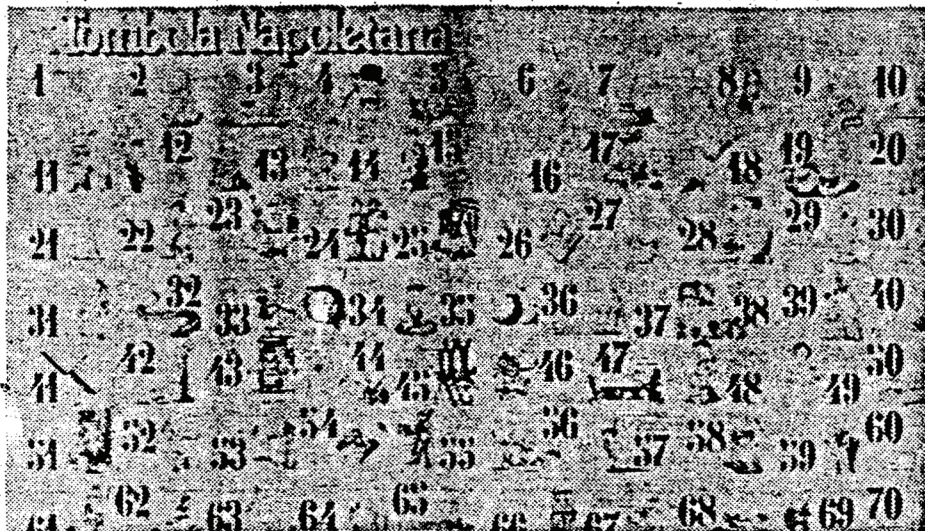 Tombola Napoletana
1 2 3 4 5 6 7 8 9 10
11 12 13 14 15 16 17 18 19 20
21 22 23 24 25 26 27 28 29 30
31 32 33 34 35 36 37 38 39 40
41 42 43 44 45 46 47 48 49 50
51 52 53 54 55 56 57 58 59 60
61 62 63 64 65 66 67 68 69 70